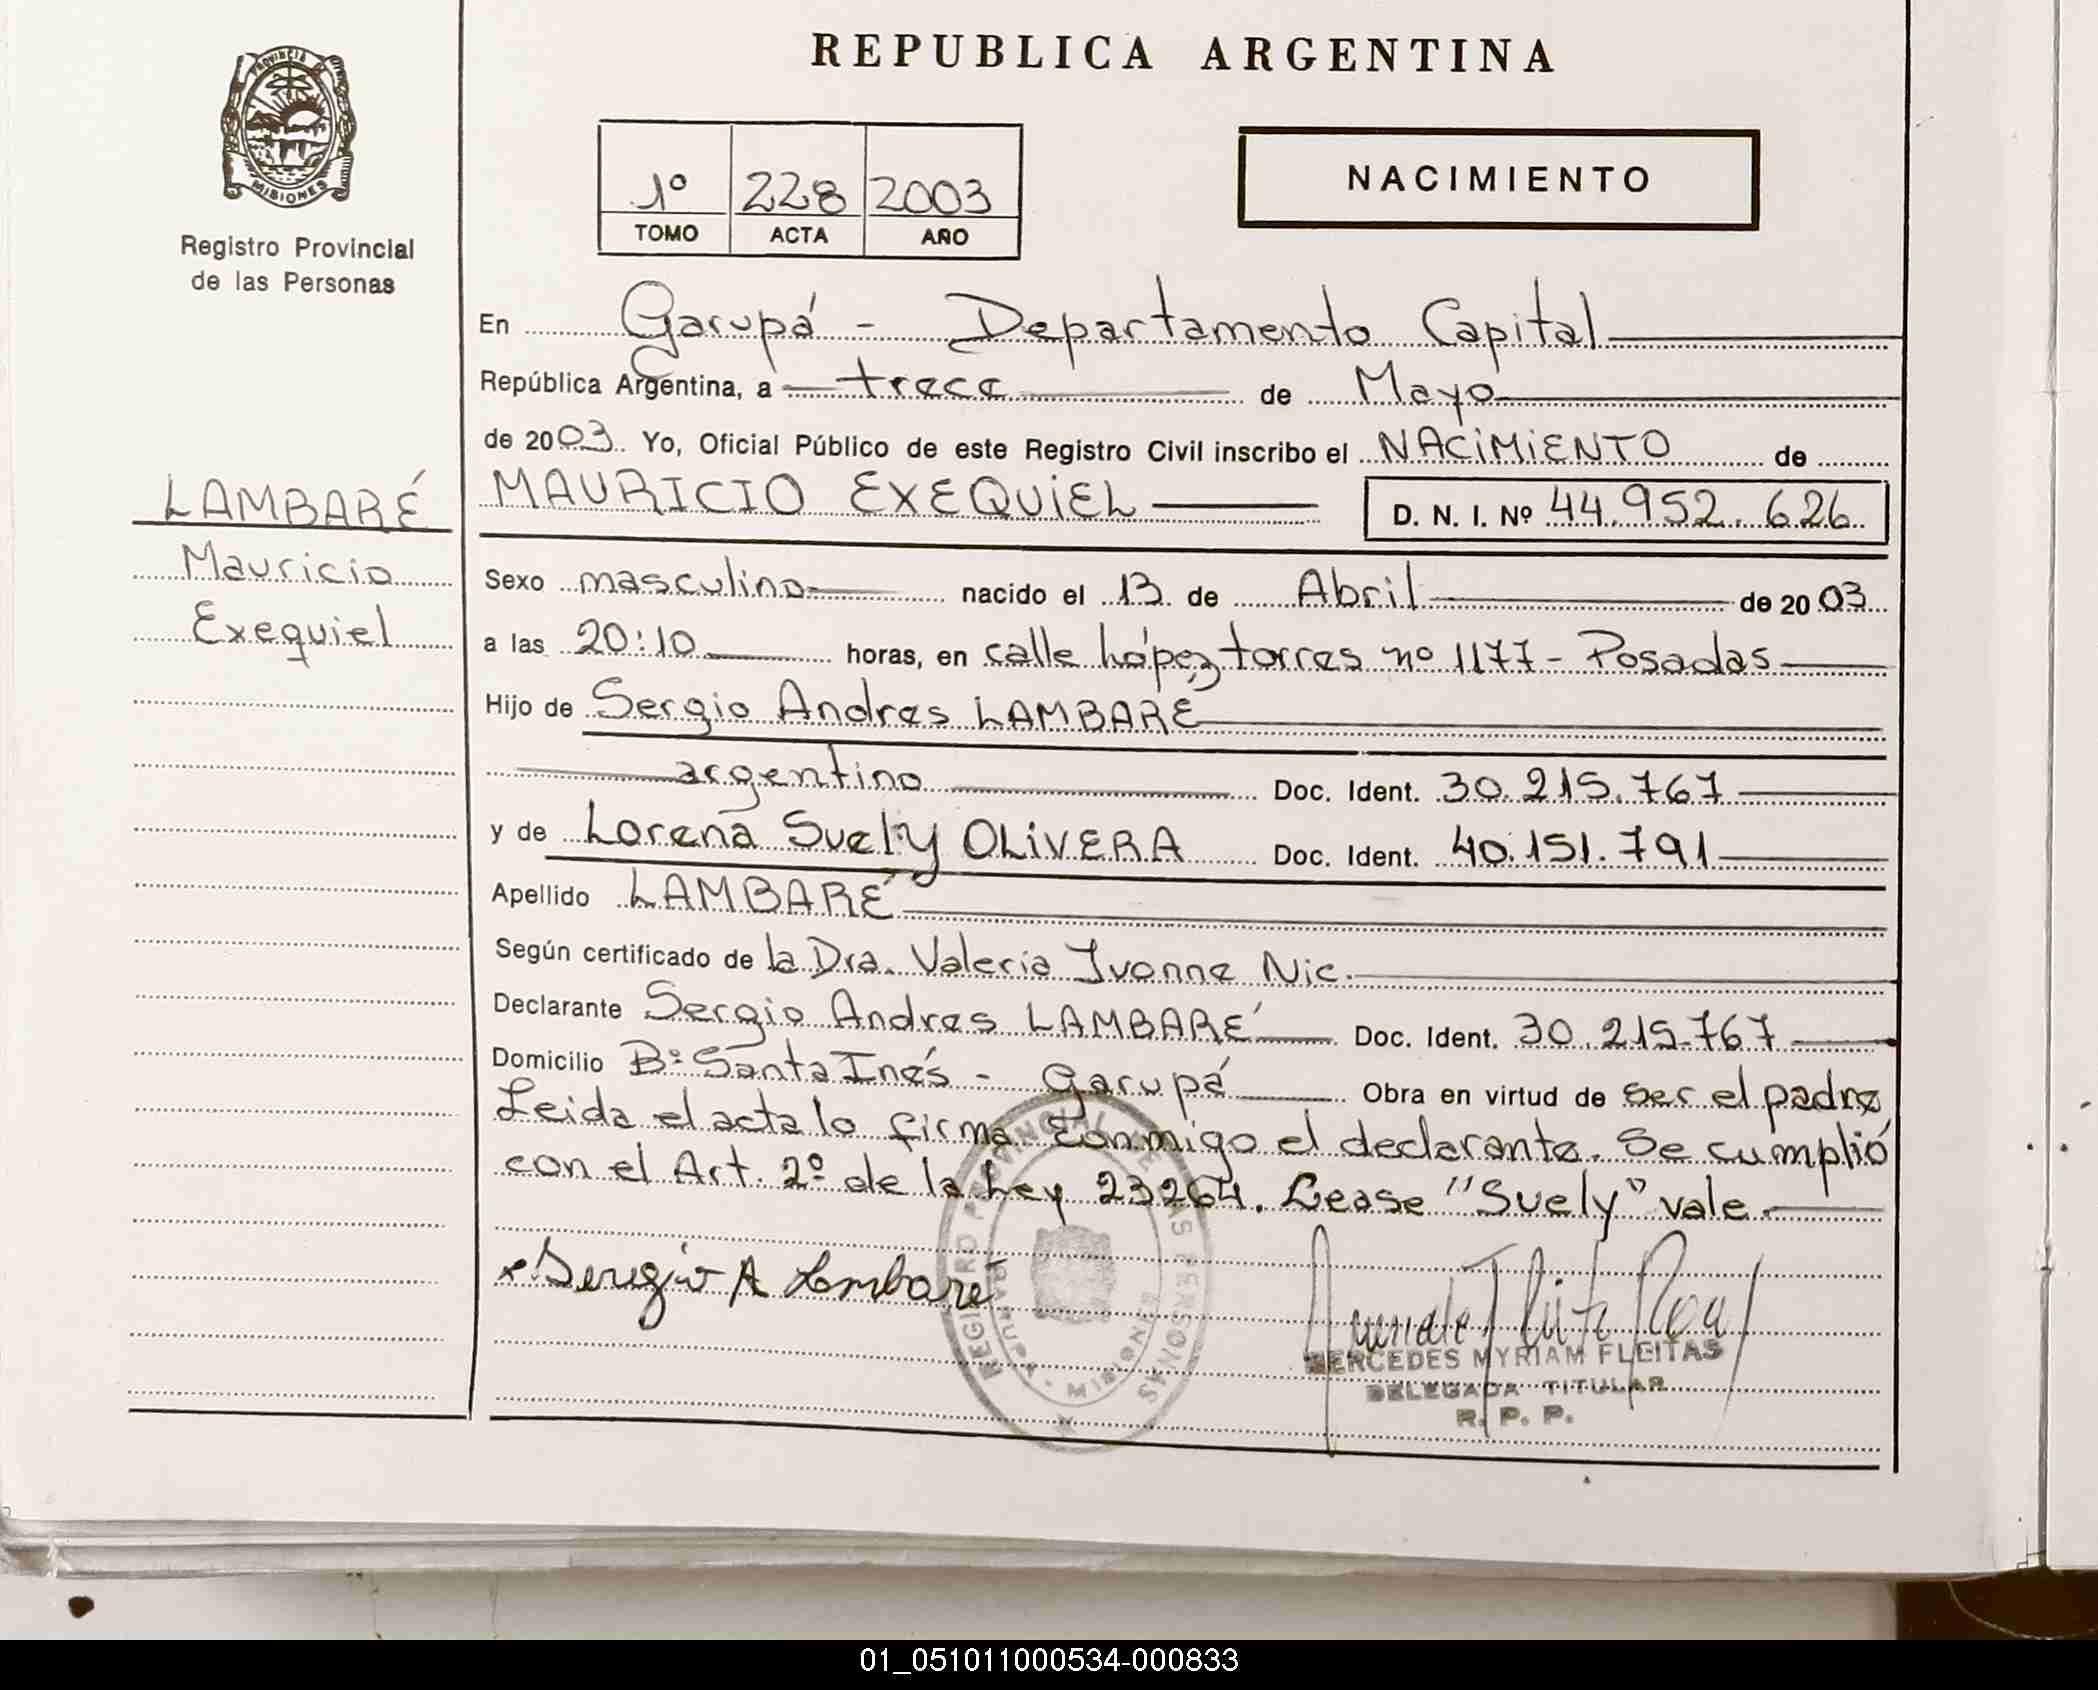 REPUBLICA ARGENTINA
PROVINCIA DE
MISIONES
Registro Provincial
de las Personas
1º 228 2003
TOMO ACTA AÑO
NACIMIENTO
En Garupá - Departamento Capital
República Argentina, a trece de Mayo
de 2003 Yo, Oficial Público de este Registro Civil inscribo el NACIMIENTO de
MAURICIO EXEQUIEL D. N. I. Nº 44.952.626
LAMBARÉ
Mauricio
Exequiel
Sexo masculino nacido el 13 de Abril de 2003
a las 20:10 horas, en calle López torres nº 1177 - Posadas
Hijo de Sergio Andres LAMBARÉ
argentino Doc. Ident. 30.215.767
y de Lorena Suely OLIVERA Doc. Ident. 40.151.791
Apellido LAMBARÉ
Según certificado de la Dra. Valeria Ivonne Nic.
Declarante Sergio Andres LAMBARÉ Doc. Ident. 30.215.767
Domicilio Bº Santa Inés - Garupá Obra en virtud de ser el padre
Leida el acta lo firma conmigo el declarante. Se cumplió
con el Art. 2º de la Ley 23264. Lease "Suely" vale
Sergio A Lambaré
REGISTRO PROVINCIAL DE LAS PERSONAS
GARUPA - Misiones
MERCEDES MYRIAM FLEITAS
DELEGADA TITULAR
R. P. P.
01_051011000534-000833